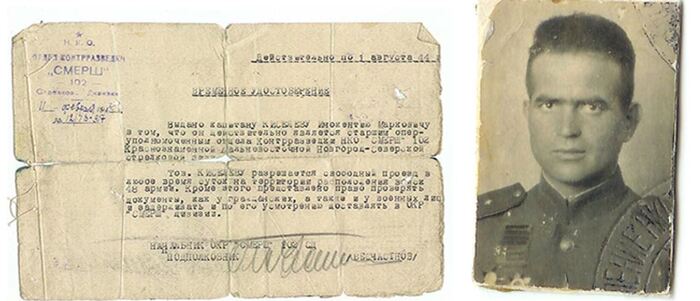 Н. К. О.
ОТДЕЛ КОНТРРАЗВЕДКИ
"СМЕРШ"
102
Действительно по 1 августа 44
ВРЕМЕННОЕ УДОСТОВЕРЕНИЕ
Выдано капитану КИСЕЛЕВУ Инокентию Марковичу
в том, что он действительно является старшим опер-
уполномоченным отдела Контрразведки НКО "СМЕРШ" 102
Краснознаменной Дальневосточной Новгород-Северской
стрелковой
Тов. КИСЕЛЕВУ разрешается свободный проезд в
любое время суток на территории расположения войск
48 армии. Кроме этого представлено право проверять
документы, как у гражданских, а также и у военных лиц
и задерживать и по его усмотрению доставлять в ОКР
"СМЕРШ" дивизии.
НАЧАЛЬНИК ОКР "СМЕРШ" 102 СД
ПОДПОЛКОВНИК